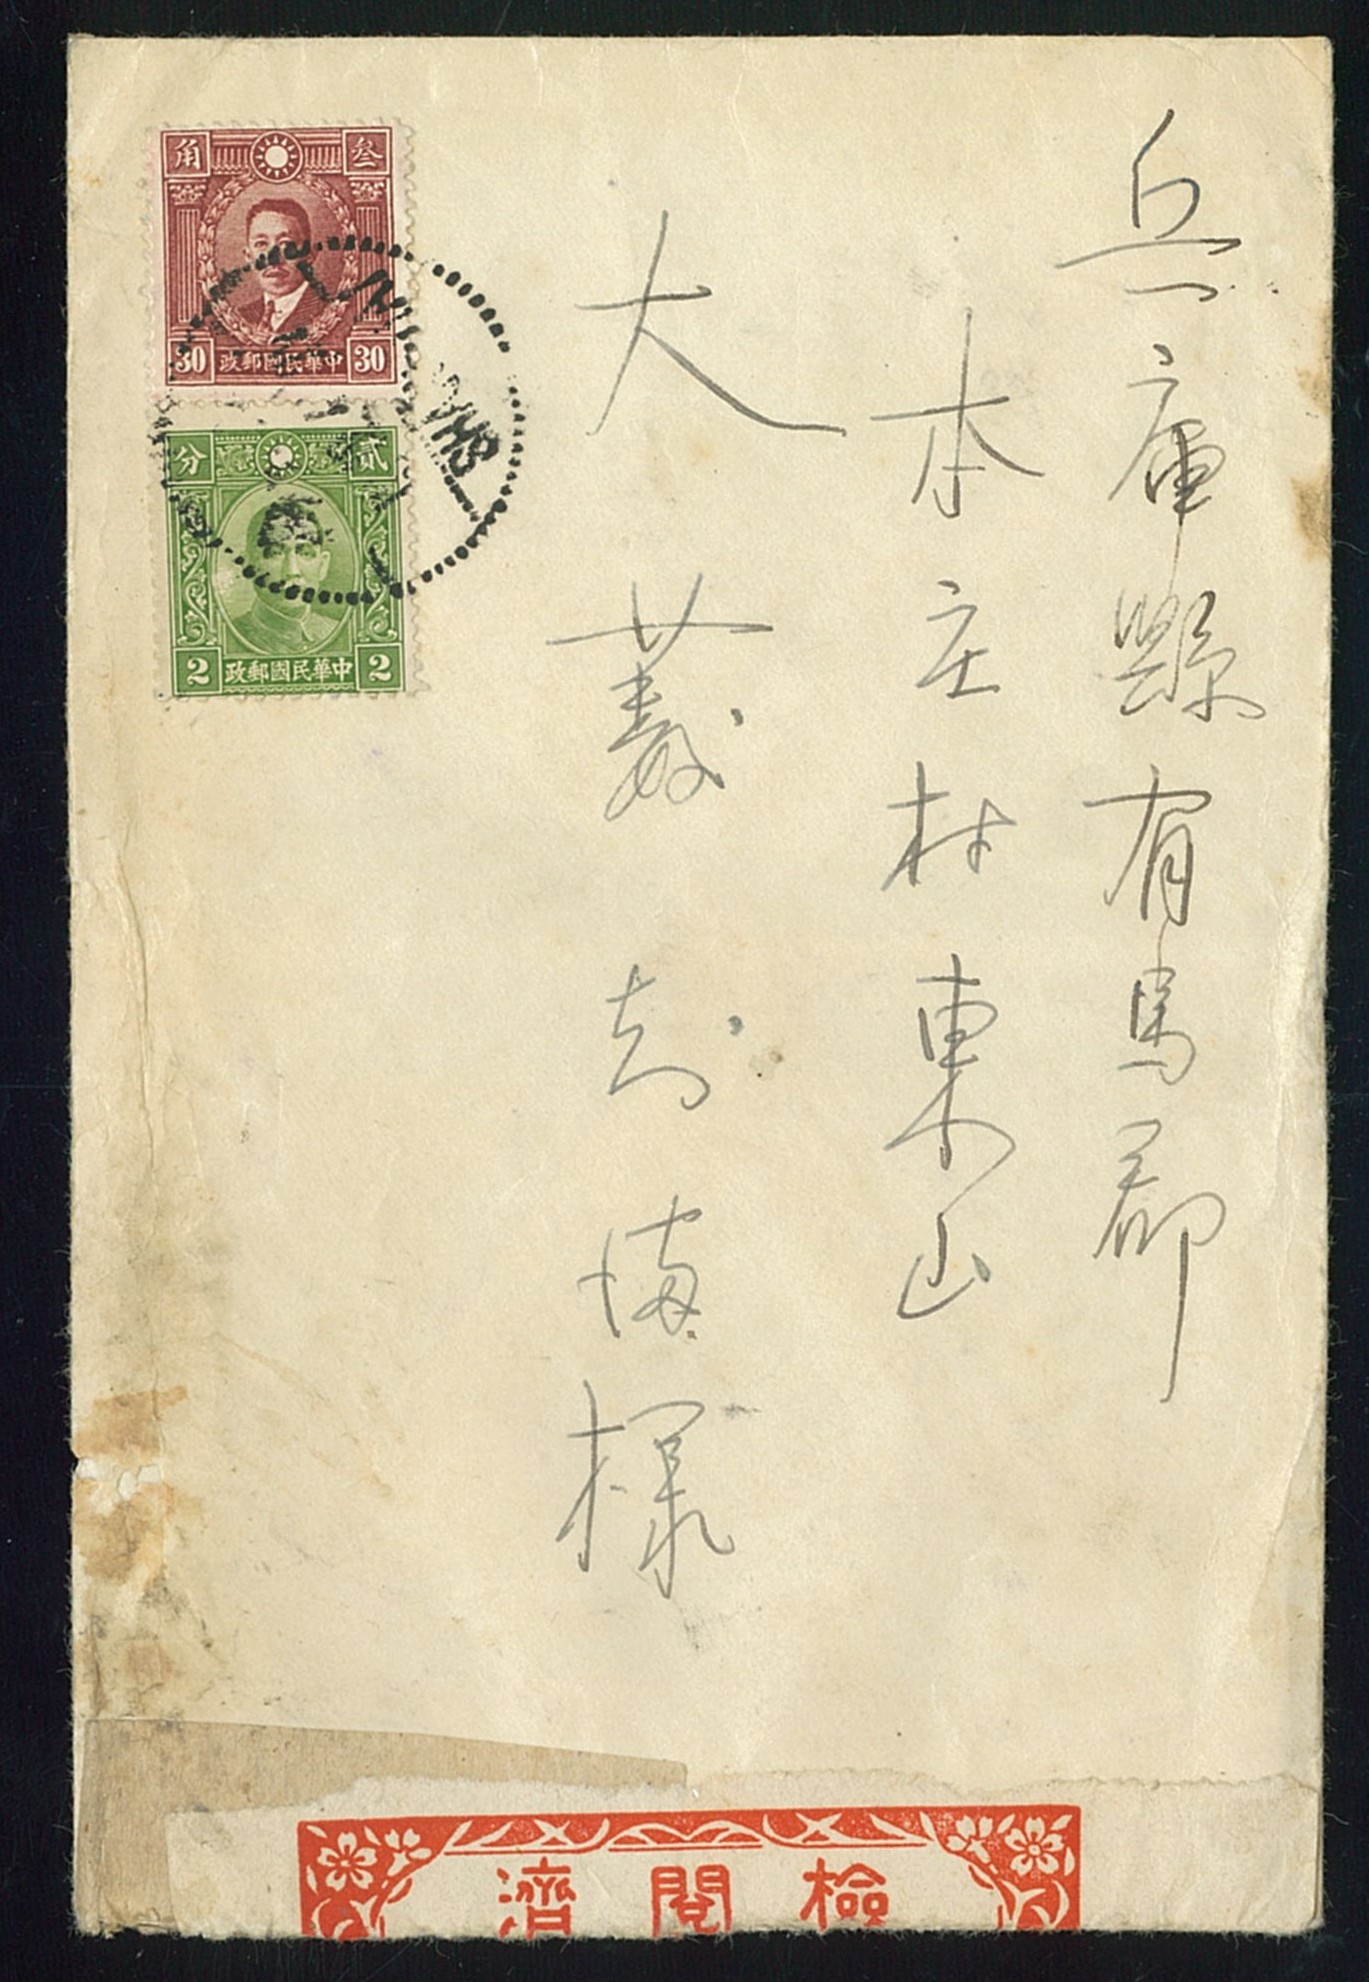 兵庫縣有馬郡
本庄村東山
大
様
角 叁
30 中華民國郵政 30
分 貳
2 中華民國郵政 2
SHANGHAI
檢閲濟